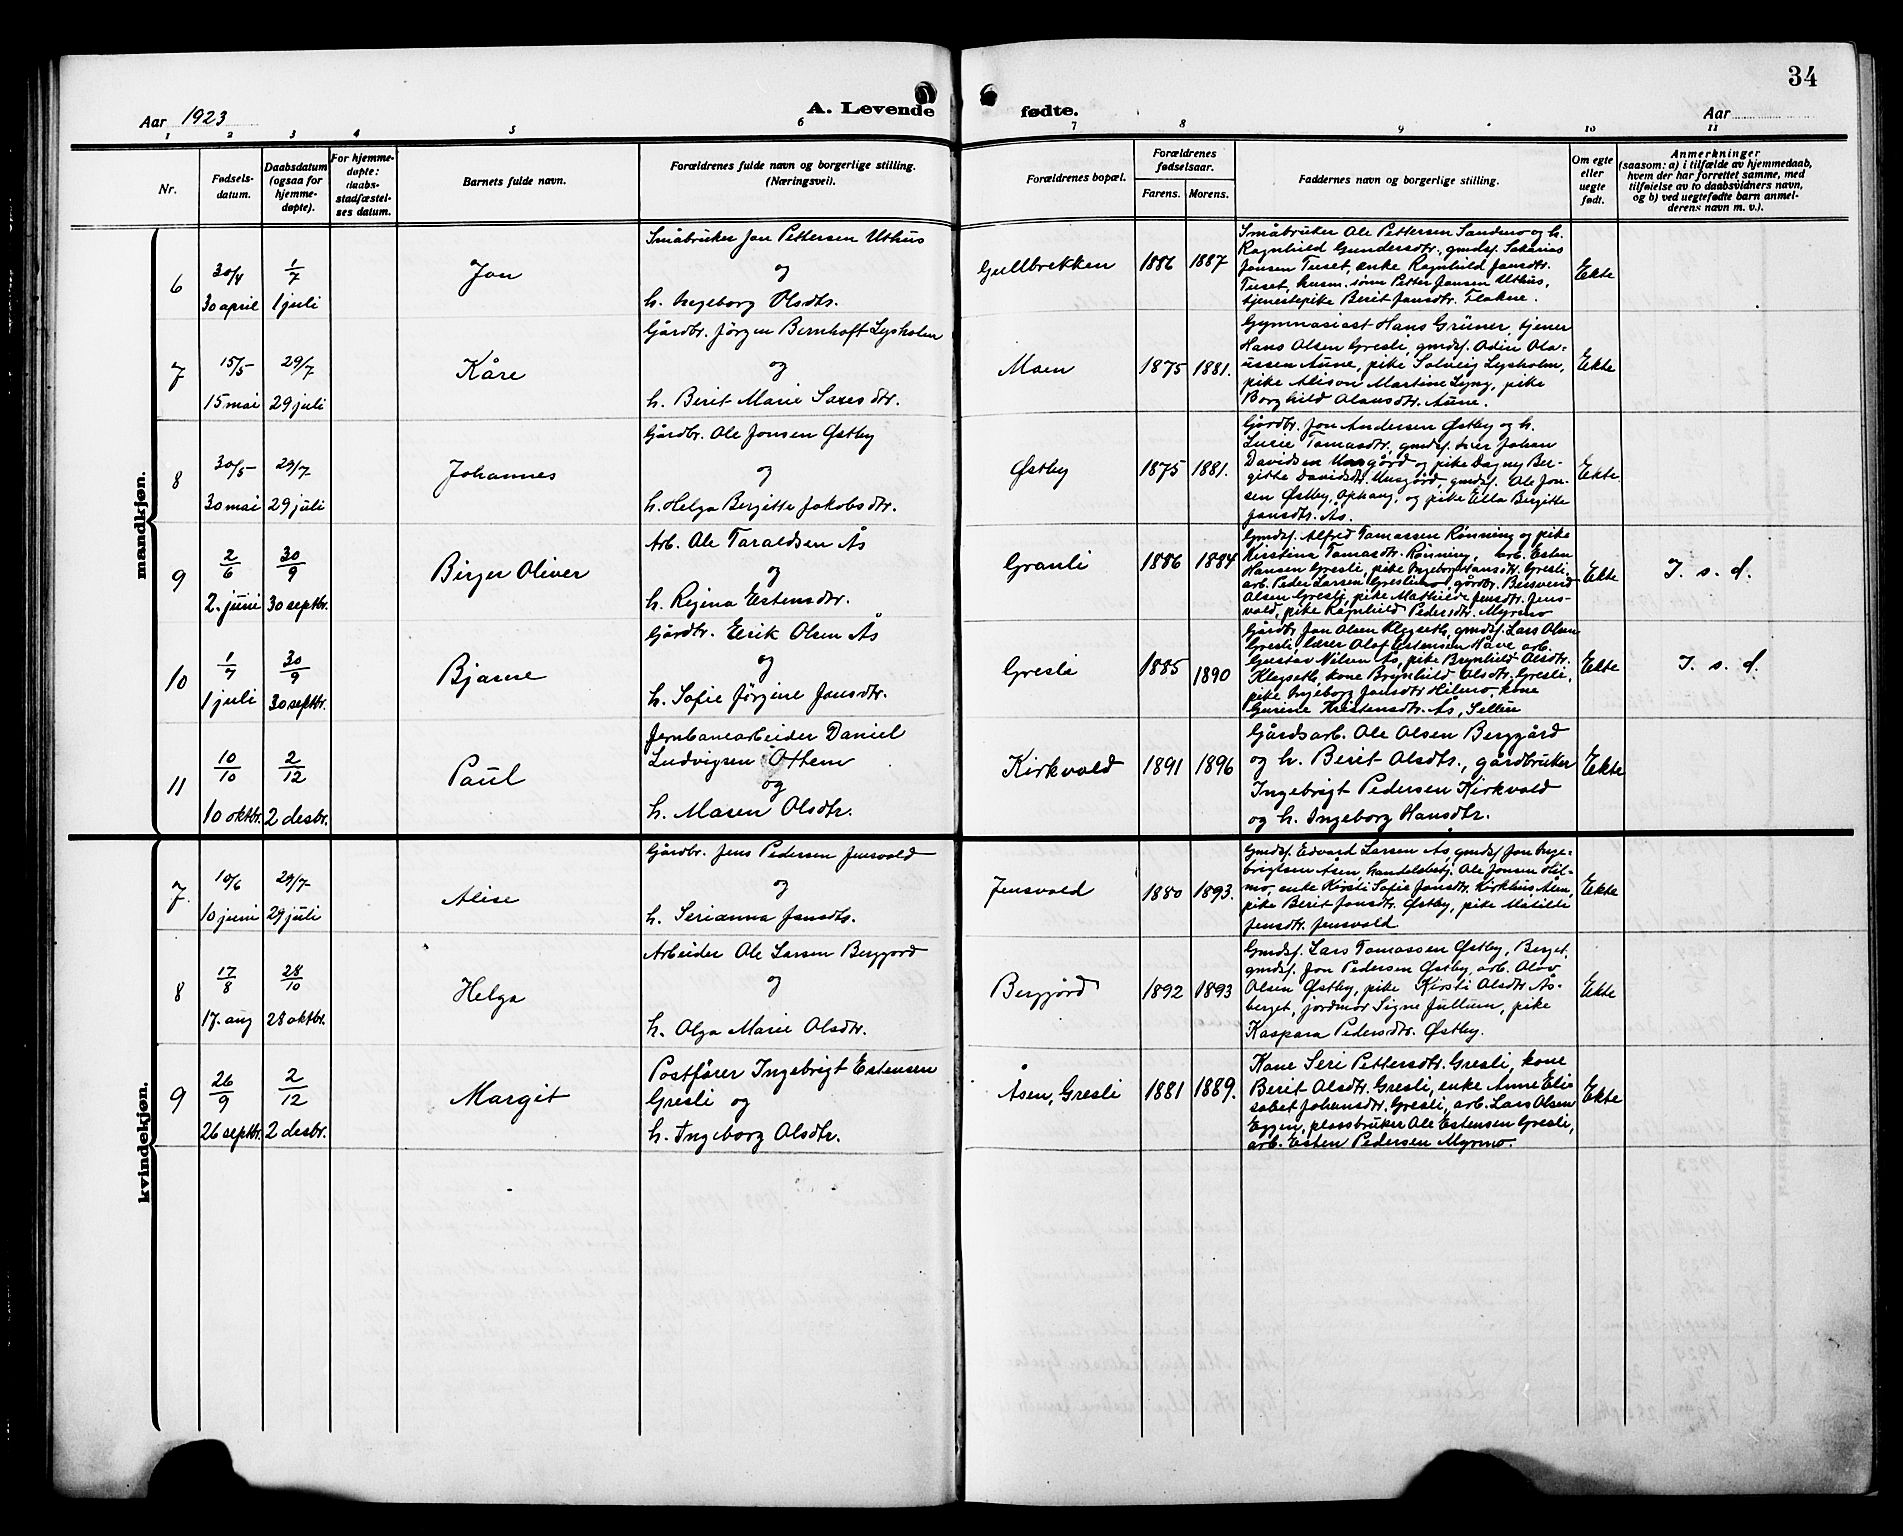 34
Aar 1923
A. Levende
fødte.
Aar
1 2 3 4 5 6 7 8 9 10 11
Nr.
Fødsels-
datum.
Daabsdatum
(ogsaa for
hjemme-
døpte).
For hjemme-
døpte:
daabs-
stadfæstel-
ses datum.
Barnets fulde navn.
Forældrenes fulde navn og borgerlige stilling.
(Næringsvei).
Forældrenes bopæl.
Forældrenes
fødselsaar.
Farens. Morens.
Faddernes navn og borgerlige stilling.
Om egte
eller
uegte
født.
Anmerkninger
(saasom: a) i tilfælde av hjemmedaab,
hvem der har forrettet samme, med
tilføielse av to daabsvidners navn,
og b) ved uegtefødte barn anmel-
derens navn m. v.).
mandkjøn.
6
30/4
30 april
1/7
1 juli
Jon
Småbruker Jon Pettersen Uthus
og
h. Ingeborg Olsdtr.
Gullbrekken
1886 1887
Småbruker Ole Pettersen Sandmo og h.
Ragnhild Gundersdtr., gmdsf. Sakarias
Jonsen Tuset, enke Ragnhild Jonsdtr.
Tuset, husm. sønn Petter Jonsen Uthus,
tjenestepike Berit Jonsdtr. Flakne.
Ekte
7
15/5
15 mai
29/7
29 juli
Kåre
Gårdbr. Jørgen Bernhoft Lysholm
og
h. Berit Marie Larsdtr.
Moen
1875 1881.
Gymnasiast Hans Grüner, tjener
Hans Olsen Gresli, gmdsf. Odin Ola-
ussen Aune, pike Solveig Lysholm,
pike Alison Martine Lyng, pike
Borghild Olausdtr. Aune.
Ekte
8
30/5
30 mai
29/7
29 juli
Johannes
Gårdbr. Ole Jonsen Østby
og
h. Helga Bergitte Jakobsdtr.
Østby
1875 1881.
Gårdbr. Jon Andersen Østby og h.
Lucie Tomasdtr., gmdsf. Iver Johan
Davidsen Unsgård og pike Dagny Ber-
gitte Davidsdtr. Unsgård, gmdsf. Ole Jon-
sen Østby, Ophaug, og pike Ella Bergitte
Jonsdtr. Ås.
Ekte
9
2/6
2. juni
30/9
30 septbr.
Birger Oliver
Arb. Ole Taraldsen Ås
og
h. Regina Estensdtr.
Granli
1886 1884
Gmdsf. Alfred Tomassen Rønning og pike
Kirstine Tomasdtr. Rønning, arb. Esten
Hansen Gresli, pike Ingeborg Hansdtr. Gresli,
arb. Peder Larsen Greslimo, gårdbr. Bersvend
Olsen Gresli, pike Mathilde Jensdtr. Jens-
vold, pike Ragnhild Pedersdtr. Myrmo
Ekte
I. s. d.
10
1/7
1 juli
30/9
30 septbr.
Bjarne
Gårdbr. Eirik Olsen Ås
og
h. Sofie Jørgine Jonsdtr.
Gresli
1885 1890
Gårdbr. Jon Olsen Klegseth, gmdsf. Lars Olsen
Gresli, lærer Olof Estensen Håve, arb.
Gustav Nilsen Ås, pike Brynhild Olsdtr.
Klegseth, kone Brynhild Olsdtr. Gresli,
pike Ingeborg Jonsdtr. Hilmo, kone
Gurine Kristensdtr. Ås, Selbu
Ekte
I. s. d.
11
10/10
10 oktbr.
2/12
2 desbr.
Paul
Jernbanearbeider Daniel
Ludvigsen Othem
og
h. Masen Olsdtr.
Kirkvold
1891 1896
Gårdsarb. Ole Olsen Berggård
og h. Berit Olsdtr., gårdbruker
Ingebrigt Pedersen Kirkvold
og h. Ingeborg Hansdtr.
Ekte
kvindekjøn.
7.
10/6
10 juni
29/7
29 juli
Alise
Gårdbr. Jens Pedersen Jensvold
og
h. Serianna Jonsdtr.
Jensvold
1880 1893.
Gmdsf. Edvard Larsen Ås, gmdsf. Jon Inge-
brigtsen Åsen, handelsbetj. Ole Jonsen Hil-
mo, enke Kirsti Sofie Jonsdtr. Kirkhus Ålen,
pike Berit Jonsdtr. Østby, pike Matilde
Jensdtr. Jensvold
Ekte
8
17/8
17. aug
28/10
28 oktbr.
Helga
Arbeider Ole Larsen Bergjord
og
h. Olga Marie Olsdtr.
Bergjord
1892 1893
Gmdsf. Lars Tomassen Østby, Berget,
gmdsf. Jon Pedersen Østby, arb. Olov
Olsen Østby, pike Kirsti Olsdtr. Ås-
berget, jordmor Signe Jullum, pike
Kaspara Pedersdtr. Østby.
Ekte
9
26/9
26 septbr.
2/12
2 desbr.
Margit
Postfører Ingebrigt Estensen
Gresli og
h. Ingeborg Olsdtr.
Åsen, Gresli
1881 1889.
Kone Seri Pettersdtr. Gresli, kone
Berit Olsdtr. Gresli, enke Anne Elie
sabet Johansdtr. Gresli, arb. Lars Olsen
Eggen, plassbruker Ole Estensen Gresli,
arb. Esten Pedersen Myrmo.
Ekte